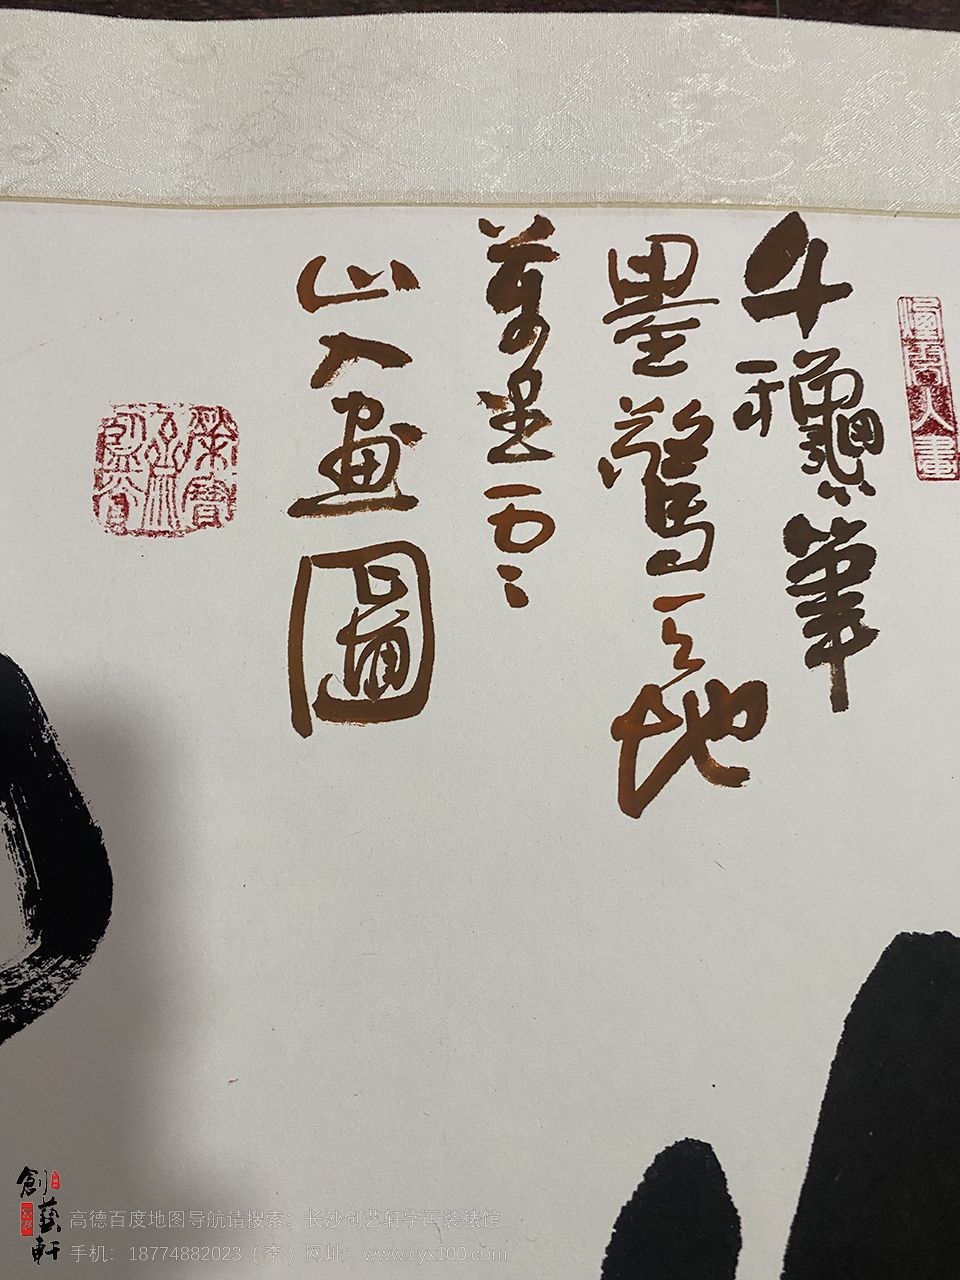 千龝筆
墨驚天地
萬里雲
山入畫圖
創藝軒
高德百度地图导航请搜索：长沙创艺轩字画装裱馆
手机：18774882023（李）网址：www.cyx100.com